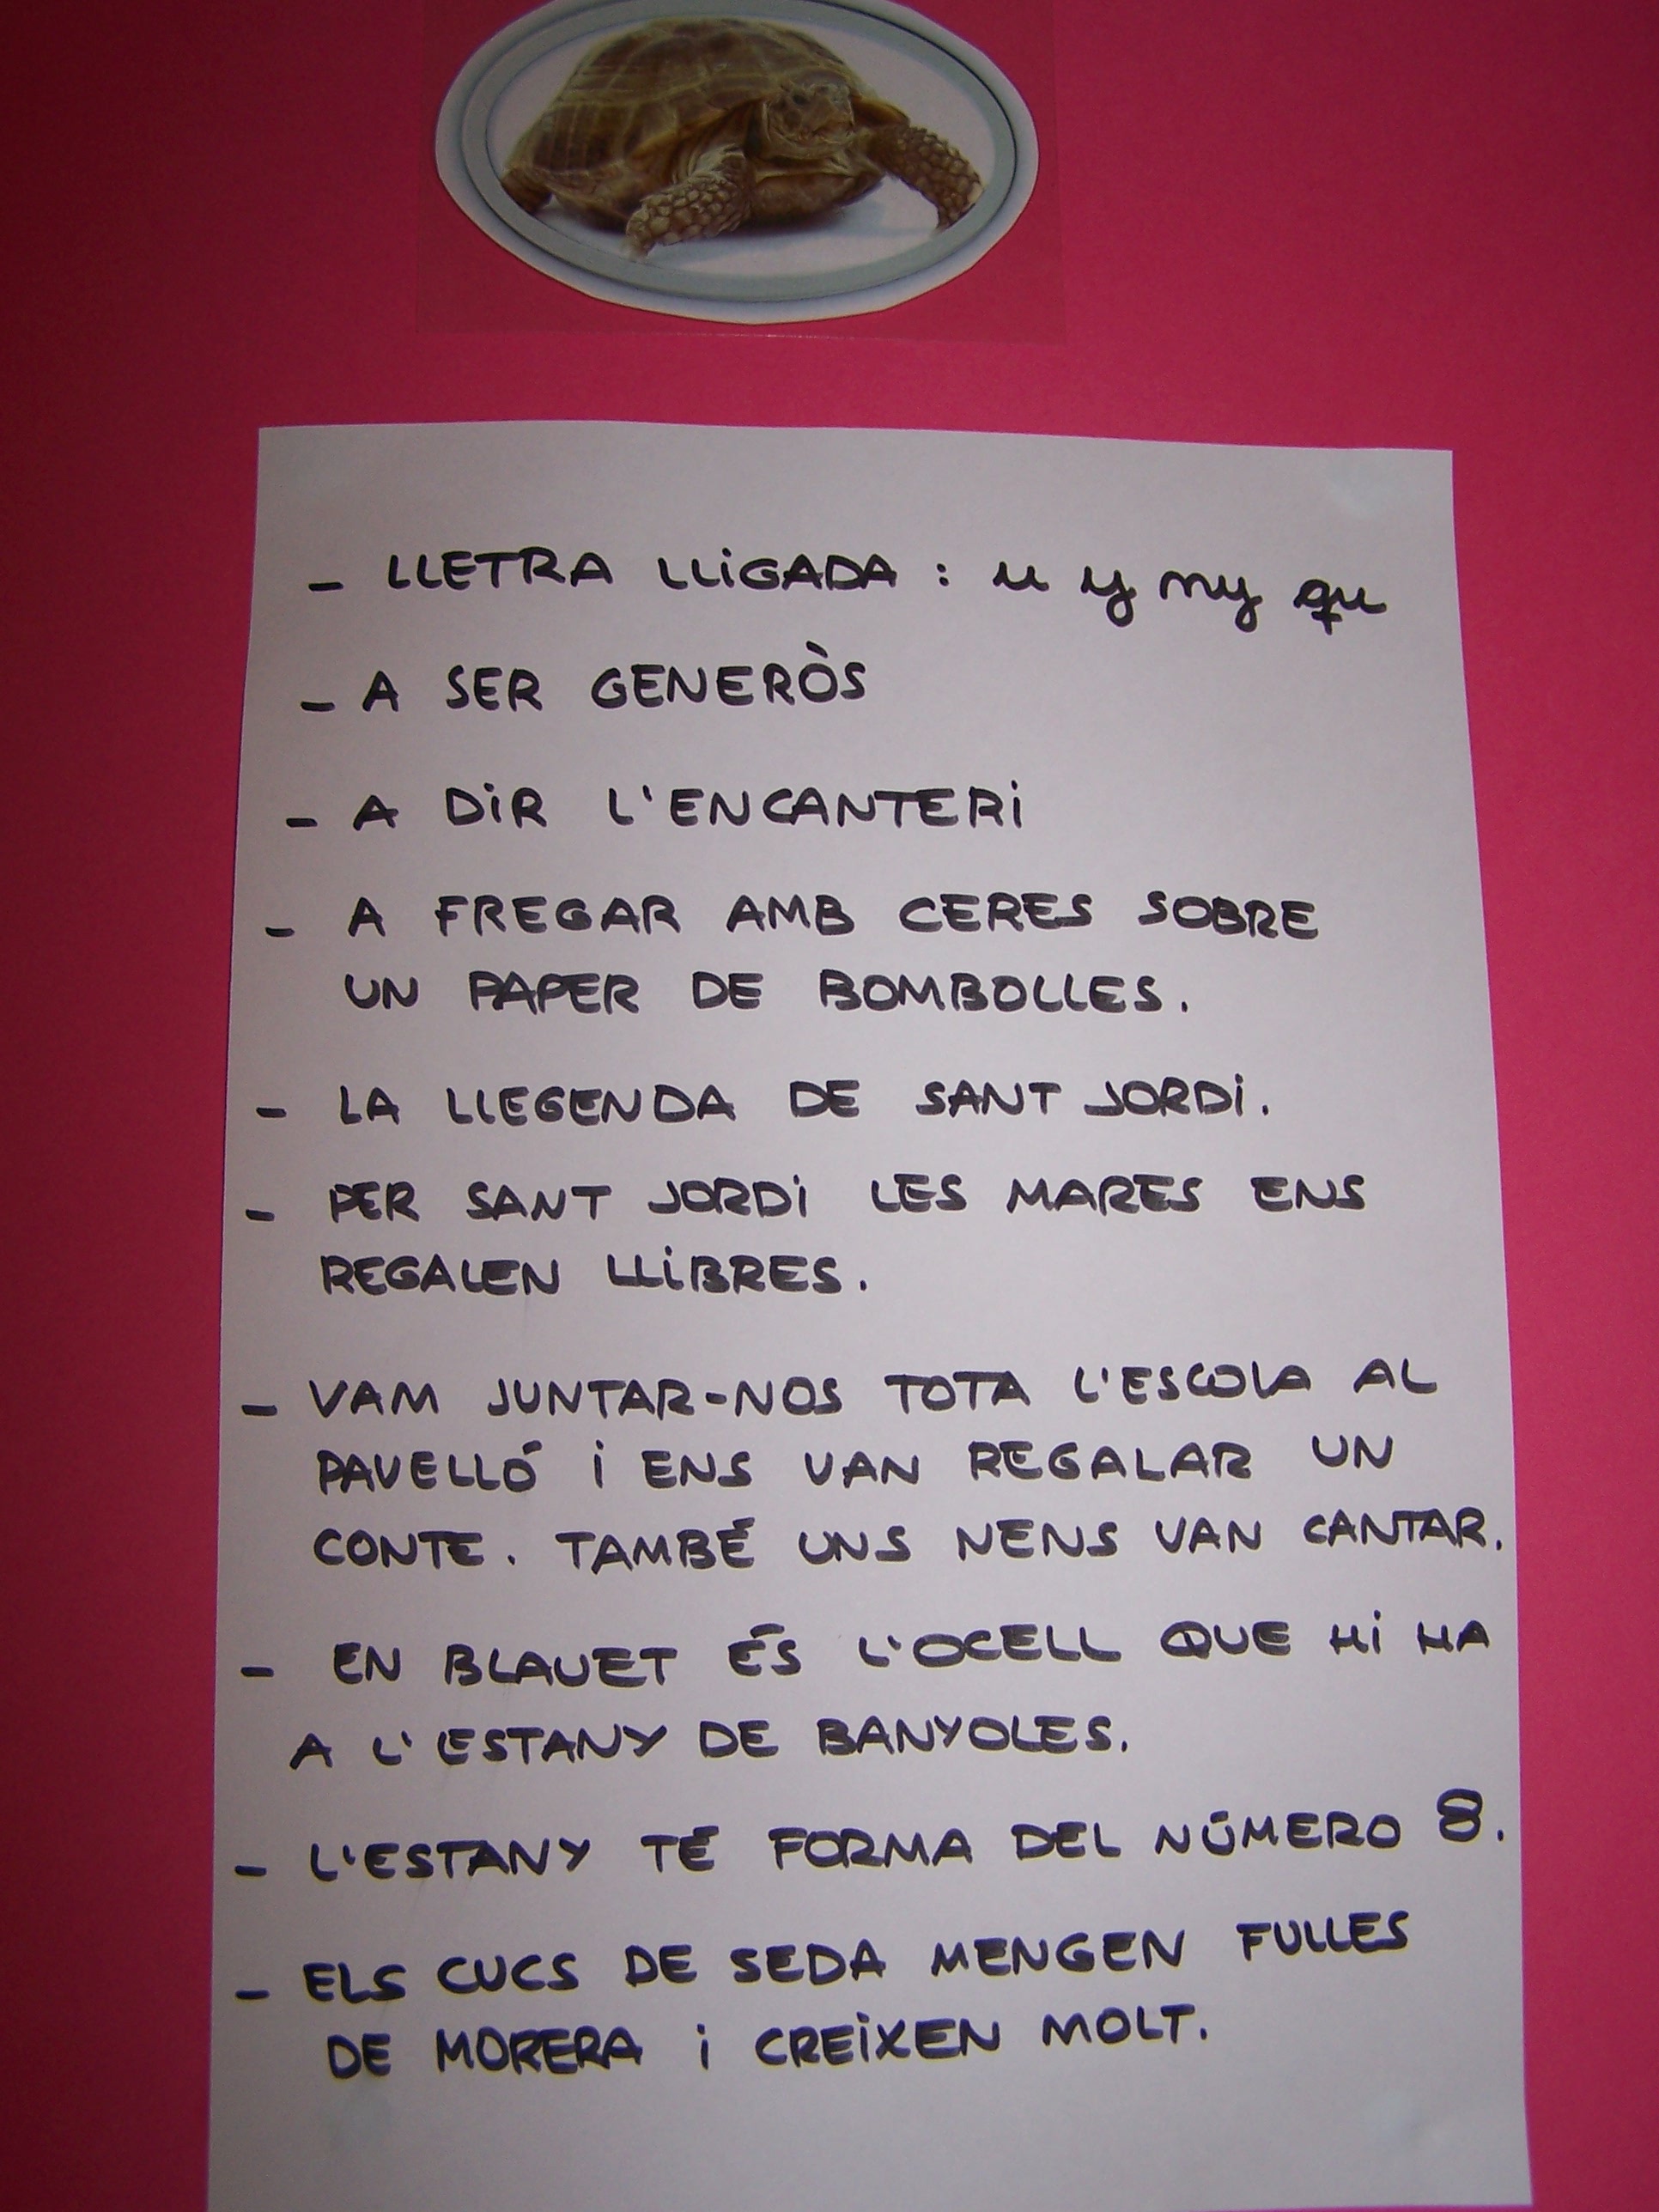 - LLETRA LLIGADA : u y ny qu
- A SER GENERÒS
- A DIR L'ENCANTERI
- A FREGAR AMB CERES SOBRE
UN PAPER DE BOMBOLLES.
- LA LLEGENDA DE SANT JORDI.
- PER SANT JORDI LES MARES ENS
REGALEN LLIBRES.
- VAM JUNTAR-NOS TOTA L'ESCOLA AL
PAVELLÓ I ENS VAN REGALAR UN
CONTE. TAMBÉ UNS NENS VAN CANTAR.
- EN BLAUET ÉS L'OCELL QUE HI HA
A L'ESTANY DE BANYOLES.
- L'ESTANY TÉ FORMA DEL NÚMERO 8.
- ELS CUCS DE SEDA MENGEN FULLES
DE MORERA I CREIXEN MOLT.